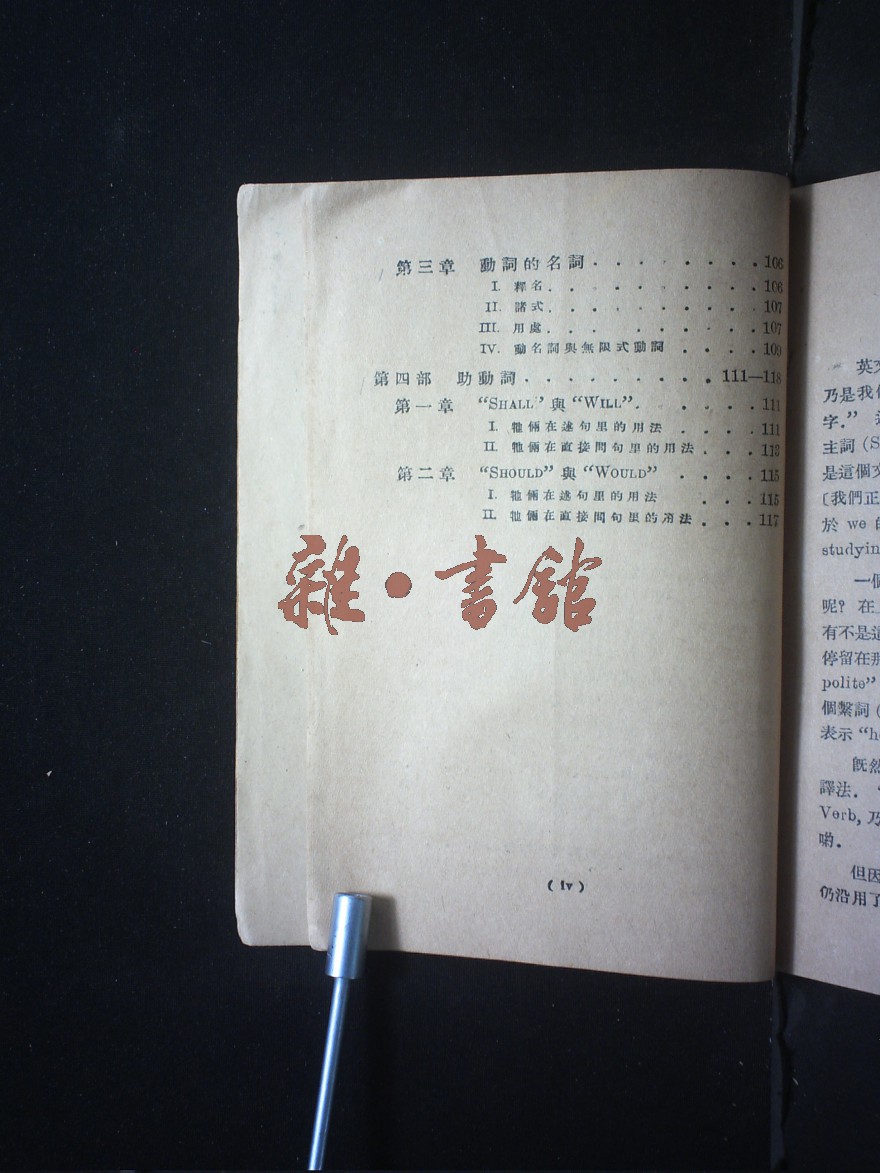 第三章 動詞的名詞. . . . . . . . .106
I. 釋名. . . . . . . . . .106
II. 諸式. . . . . . . . . .107
III. 用處. . . . . . . . .107
IV. 動名詞與無限式動詞 . . . .109
第四部 助動詞. . . . . . . . . .111—118
第一章 “SHALL’與“WILL”. . . . . .111
I. 牠倆在述句里的用法 . . . .111
II. 牠倆在直接問句里的用法 . . . .113
第二章 “SHOULD”與“WOULD” . . . .115
I. 牠倆在述句里的用法 . . . .115
II. 牠倆在直接問句里的用法 . . . .117
雜•書館
(iv)
英文
乃是我
字.”
主詞 (S
是這個
〔我們正
於 we 的
studyin
一個
呢? 在
有不是這
停留在那
polite”
個繫詞 (
表示 “h
既然
譯法.
Verb, 乃
喲.
但因
仍沿用了